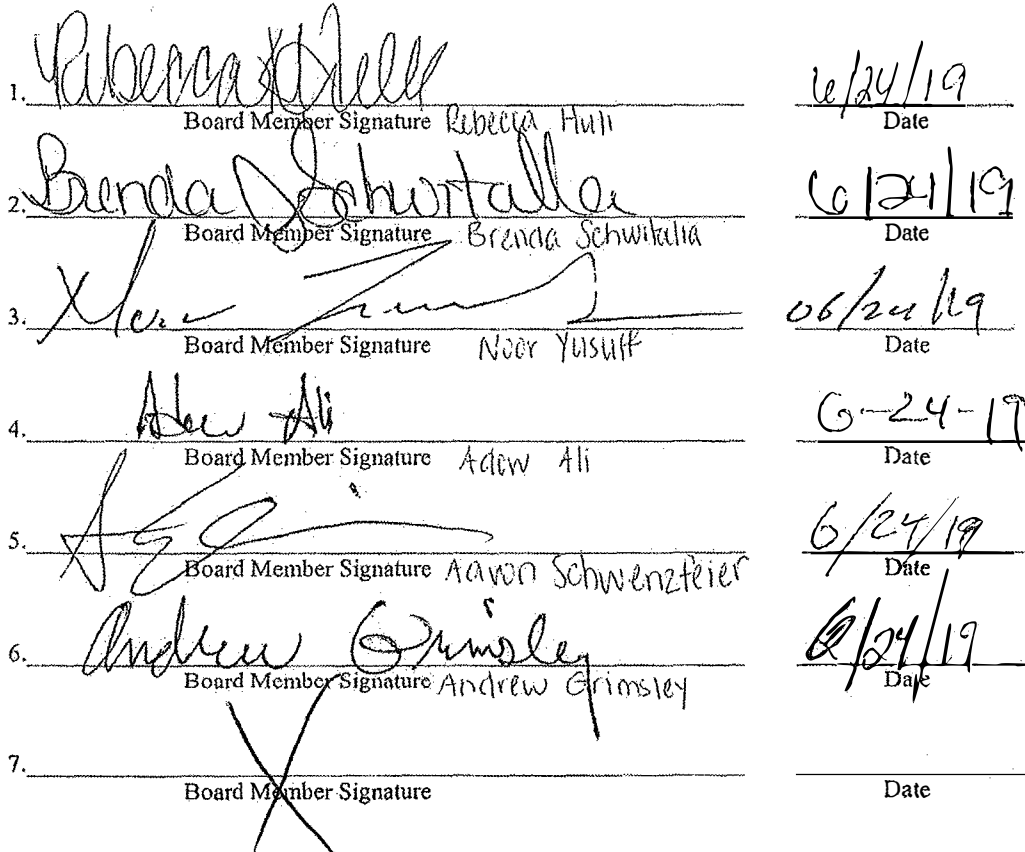 1. Rebecca Hull 6/24/19
Board Member Signature Rebecca Hull Date
2. Brenda Schwitalla 6/24/19
Board Member Signature Brenda Schwitalla Date
3. 06/24/19
Board Member Signature Noor Yusuff Date
4. Adow Ali 6-24-19
Board Member Signature Adow Ali Date
5. 6/24/19
Board Member Signature Aaron Schwenzfeier Date
6. Andrew Grimsley 6/24/19
Board Member Signature Andrew Grimsley Date
7.
Board Member Signature Date